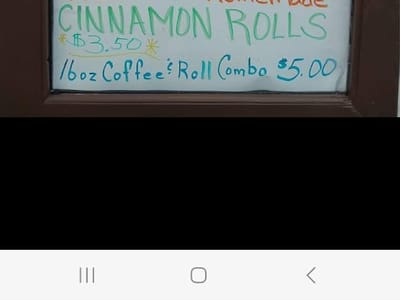 Homemade
CINNAMON ROLLS
*$3.50*
16oz Coffee & Roll Combo $5.00